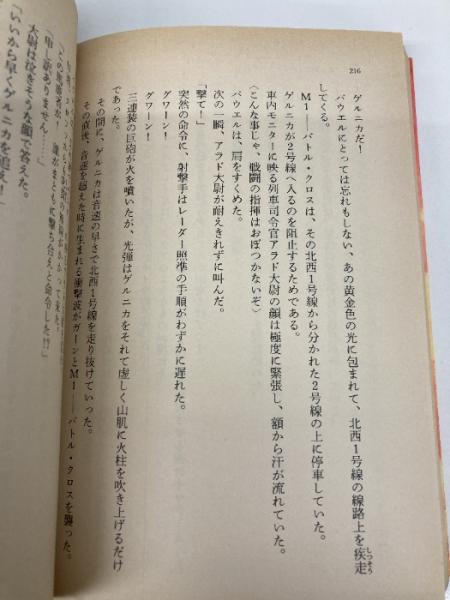 216
ゲルニカだ！
パウエルにとっては忘れもしない、あの黄金色の光に包まれて、北西１号線の線路上を疾走
してくる。
Ｍ１――バトル・クロスは、その北西１号線から分かれた２号線の上に停車していた。
ゲルニカが２号線へ入るのを阻止するためである。
車内モニターに映る列車司令官アラド大尉の顔は極度に緊張し、額から汗が流れていた。
〈こんな事じゃ、戦闘の指揮はおぼつかないぞ〉
パウエルは、肩をすくめた。
次の一瞬、アラド大尉が耐えきれずに叫んだ。
「撃て！」
突然の命令に、射撃手はレーダー照準の手順がわずかに遅れた。
グワーン！
グワーン！
三連装の巨砲が火を噴いたが、光弾はゲルニカをそれて虚しく山肌に火柱を吹き上げるだけ
であった。
その間に、ゲルニカは音速の早さで北西１号線を走り抜けていった。
その直後、音速を超えた時に生まれる衝撃波がガーンとＭ１――バトル・クロスを襲った。
誰がまともに撃ち合えと命令した!?」
「申し訳ありません……」
大尉は泣きそうな顔で答えた。
「いいから早くゲルニカを追え！」